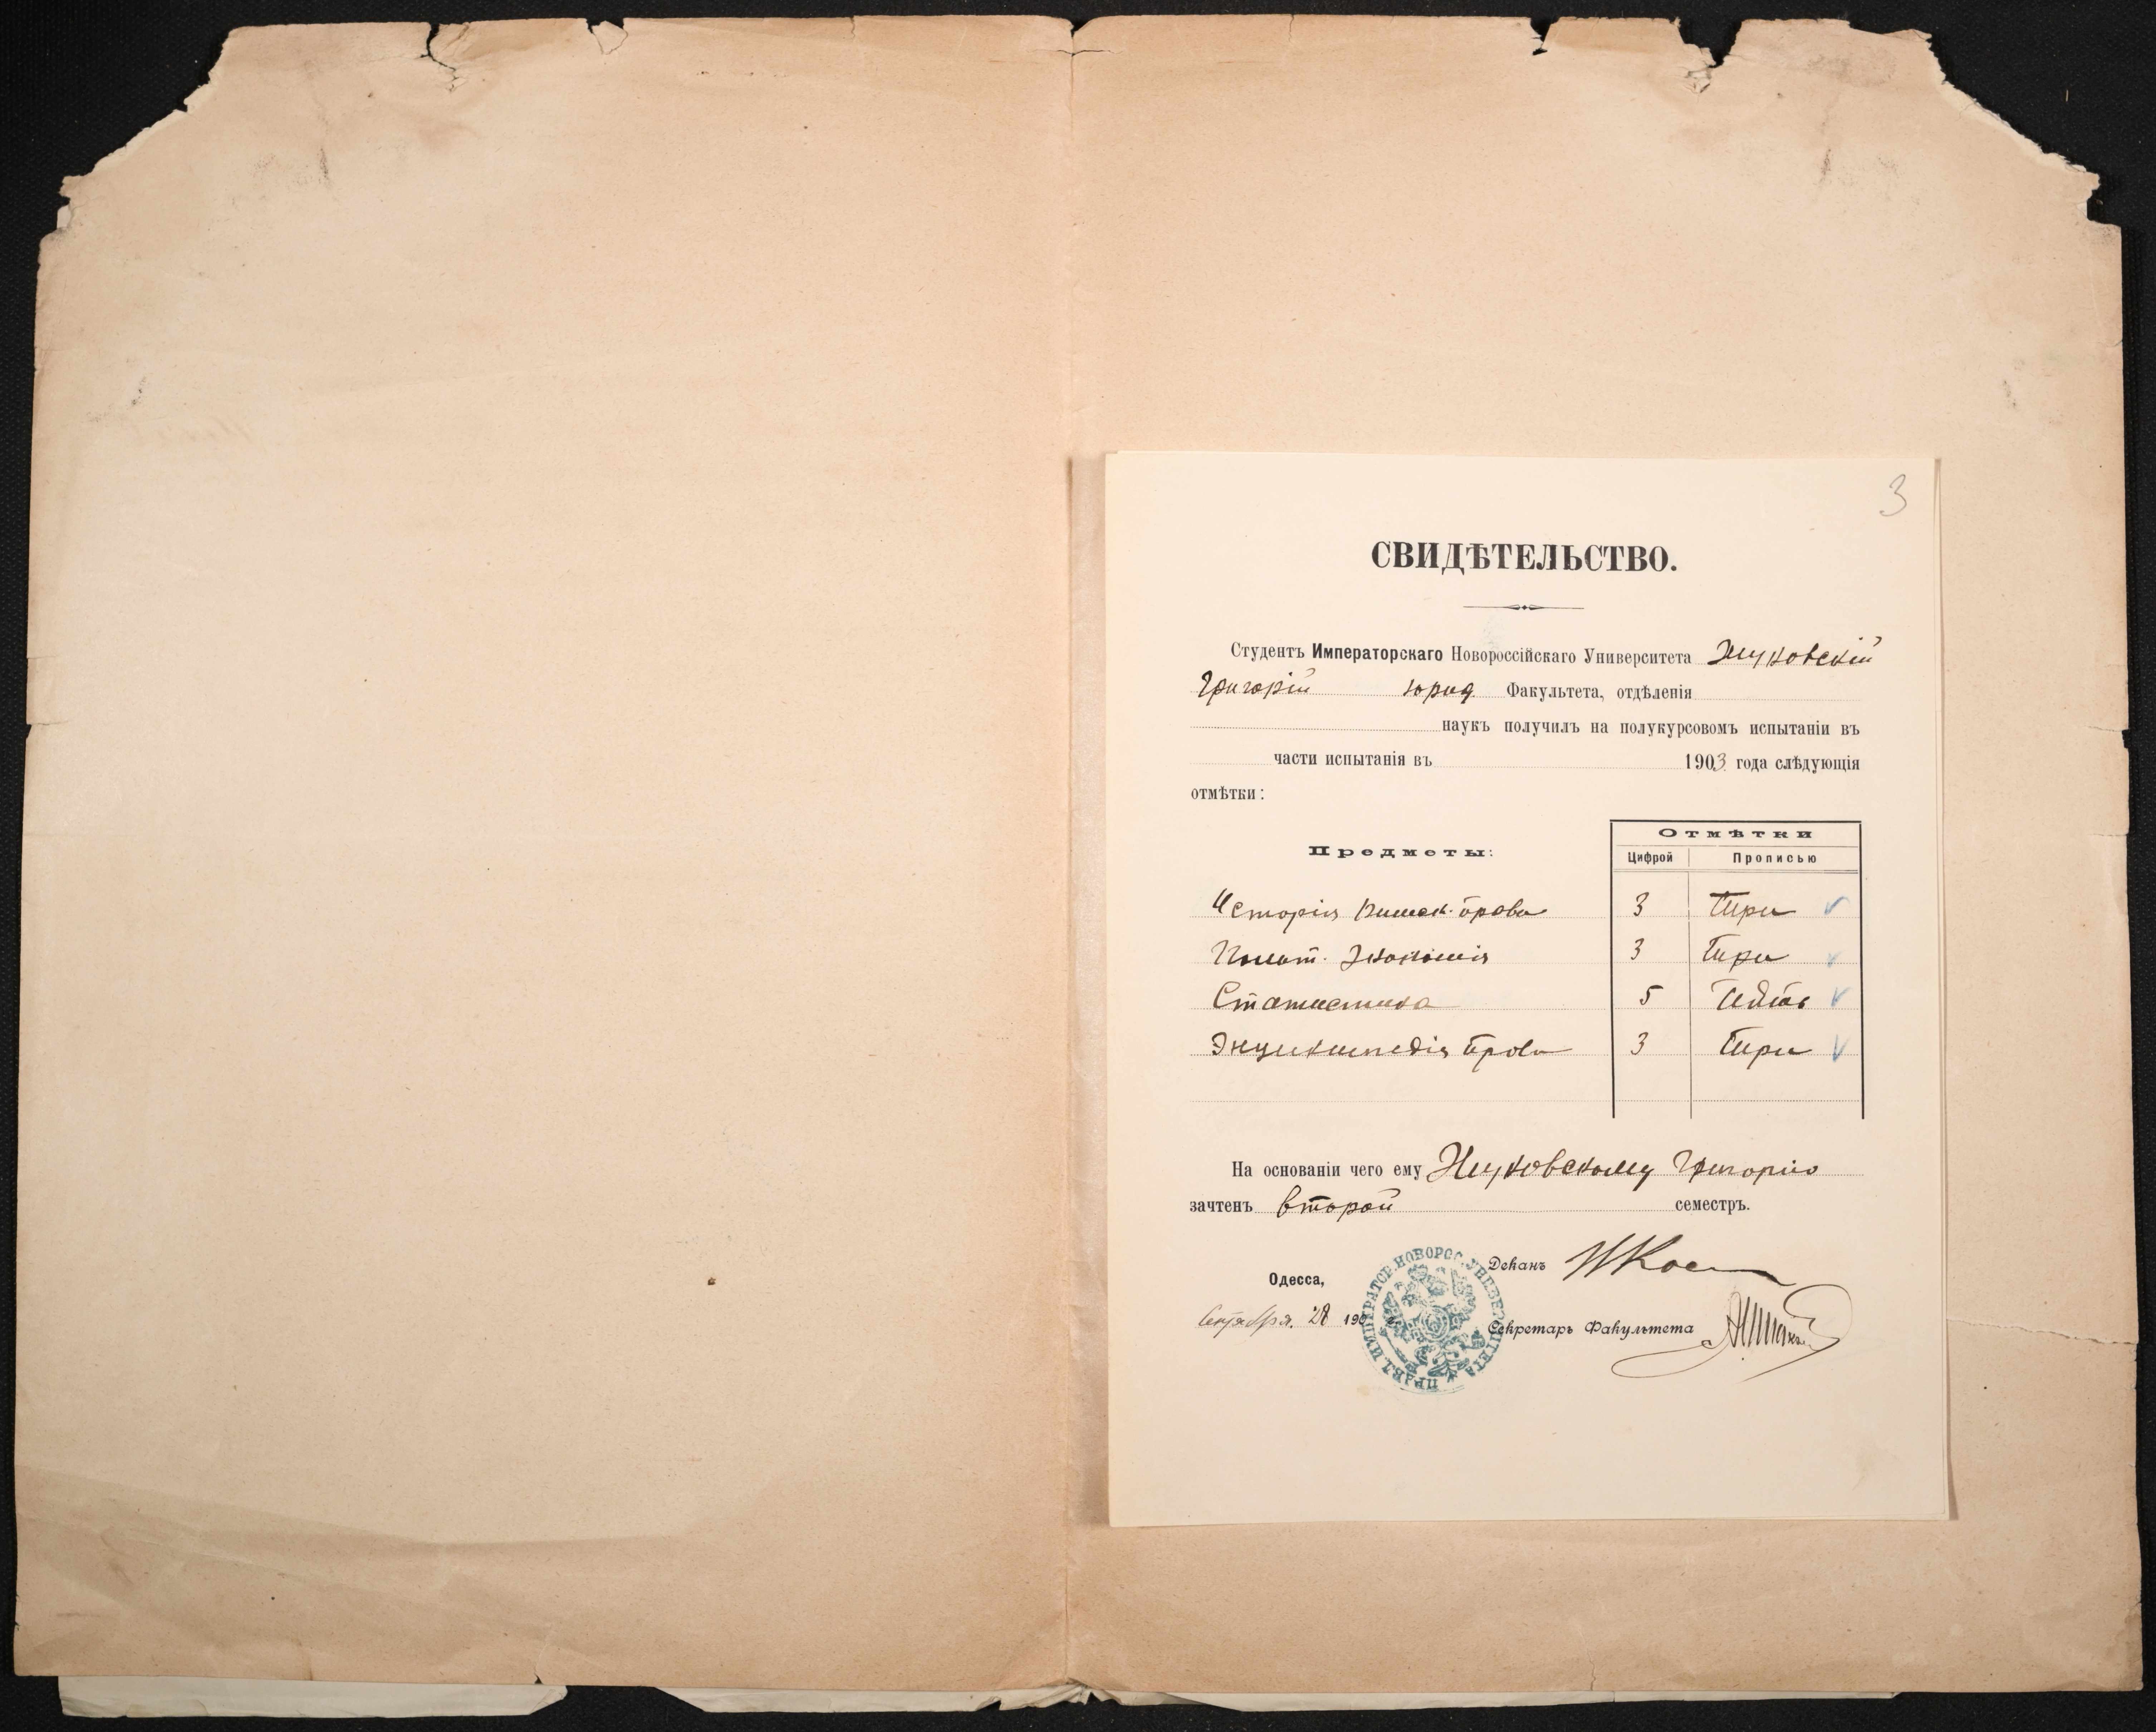 3
СВИДѢТЕЛЬСТВО.
Студентъ Императорскаго Новороссійскаго Университета Жуковскій
Григорій юрид. Факультета, отдѣленія
наукъ получилъ на полукурсовомъ испытаніи въ
части испытанія въ 1903 года слѣдующія
отмѣтки:
Предметы: Отмѣтки
Цифрой Прописью
Исторія Римск. права 3 Три
Полит. Экономія 3 Три
Статистика 5 Пять
Энциклопедія права 3 Три
На основаніи чего ему Жуковскому Григорію
зачтенъ второй семестръ.
Деканъ
Одесса,
Сентября 28 190
Секретарь Факультета
ПРАВЛ. ИМПЕРАТОР. НОВОРОС. УНИВЕРСИТЕТА